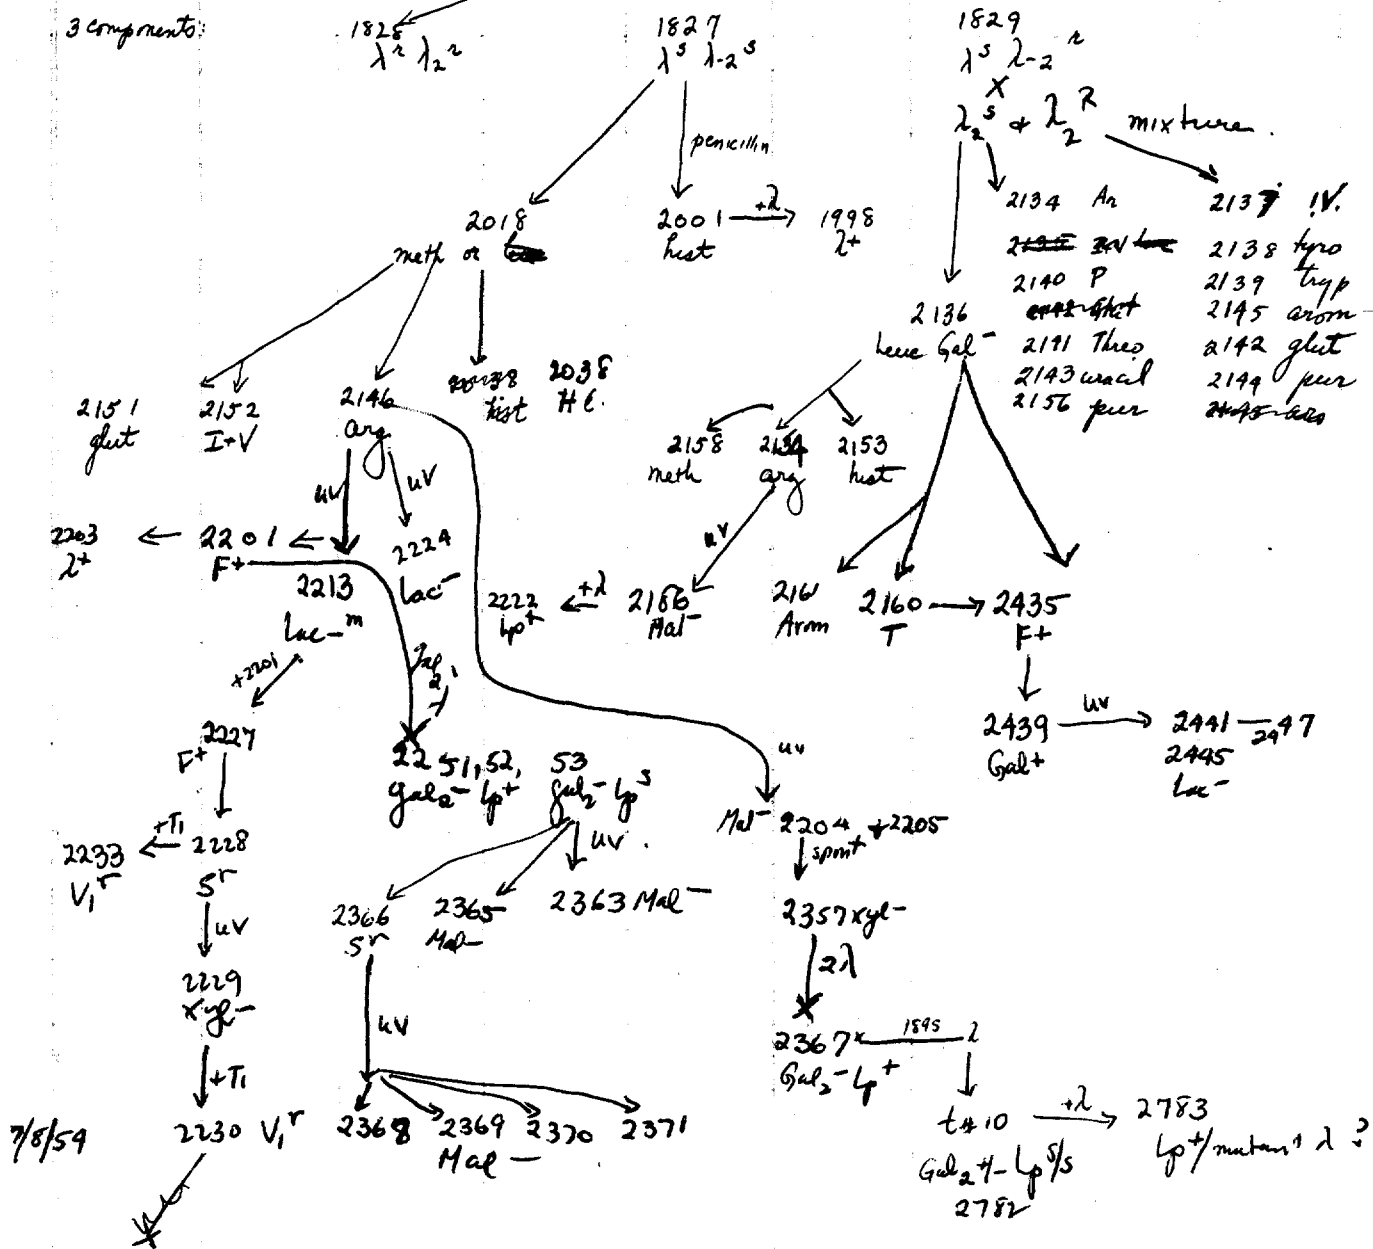 3 components:
1828
λr λ2r
1827
λs λ-2s
1829
λs λ-2r
X
λ2s & λ2R mixture.
penicillin
2018
meth or
2001 +λ 1998
hist λ+
2134 Ar
2140 P
2141 Threo
2143 uracil
2156 pur
2137 I.V.
2138 tyro
2139 tryp
2145 arom
2142 glut
2144 pur
2145 aro
2136
Leuc Gal-
2038
hist H C.
2151
glut
2152
I+V
2146
arg
2158
meth
2154
arg
2153
hist
uv
uv
uv
2203
λ+
2201
F+
2224
Lac-
2213
Lac-m
2222
Lp+
+λ
2186
Mal-
2161
Arom
2160
T
2435
F+
+2201
2227
F+
2251, 52,
Gal2- Lp+
53
gal2- Lps
uv
2439
Gal+
uv
2441 — 2447
2445
Lac-
Mal- 2204 + 2205
spont
+T1
2233
V1r
2228
Sr
uv
uv
2366
Sr
2365
Mal-
2363 Mal-
2357 xyl-
2λ
2229
xyl-
uv
2367x 1895 λ
Gal2- Lp+
+T1
7/8/54
2230 V1r
2368 2369 2370 2371
Mal-
t#10 +λ 2783
Gal2+/- Lps/s
2782
Lp+/mutant λ ?